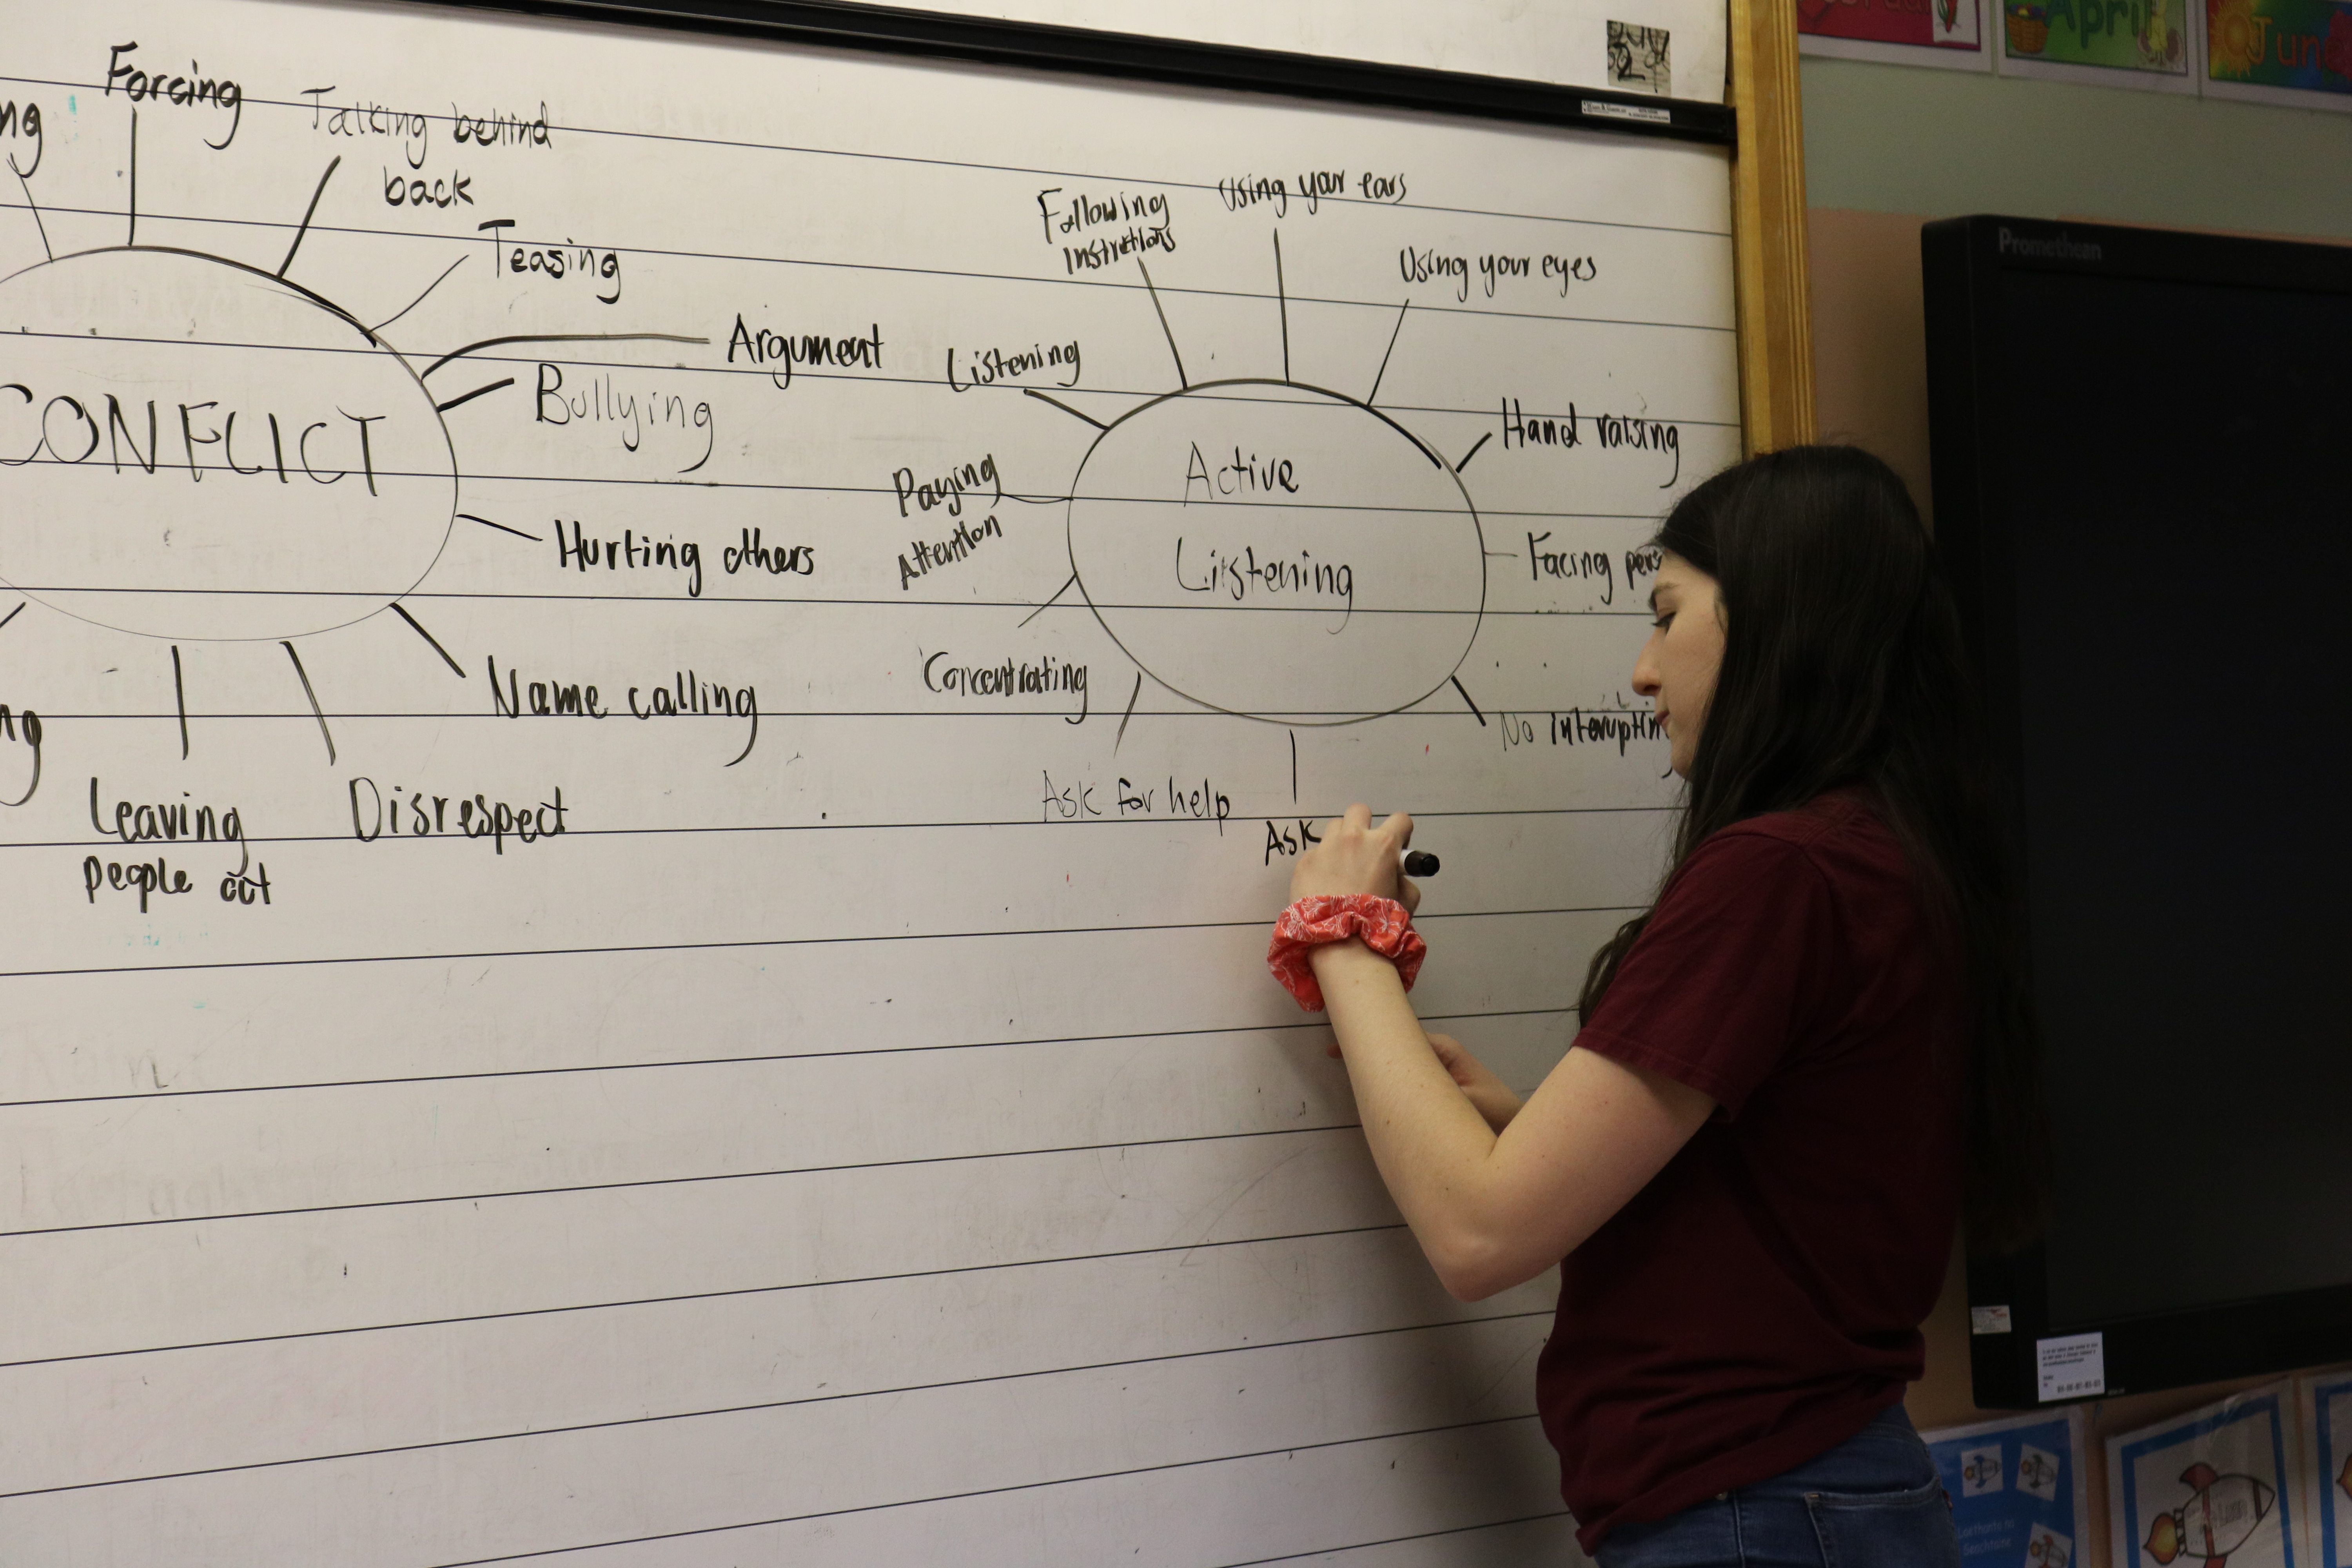 Forcing
Talking behind
back
Teasing
Argument
Bullying
CONFLICT
Hurting others
Name calling
Leaving
people out
Disrespect
Following
Using your ears
Using your eyes
Listening
Hand raising
Paying
Attention
Active
Listening
Facing
Concentrating
No interuptin
Ask for help
Ask
Promethean
April
June